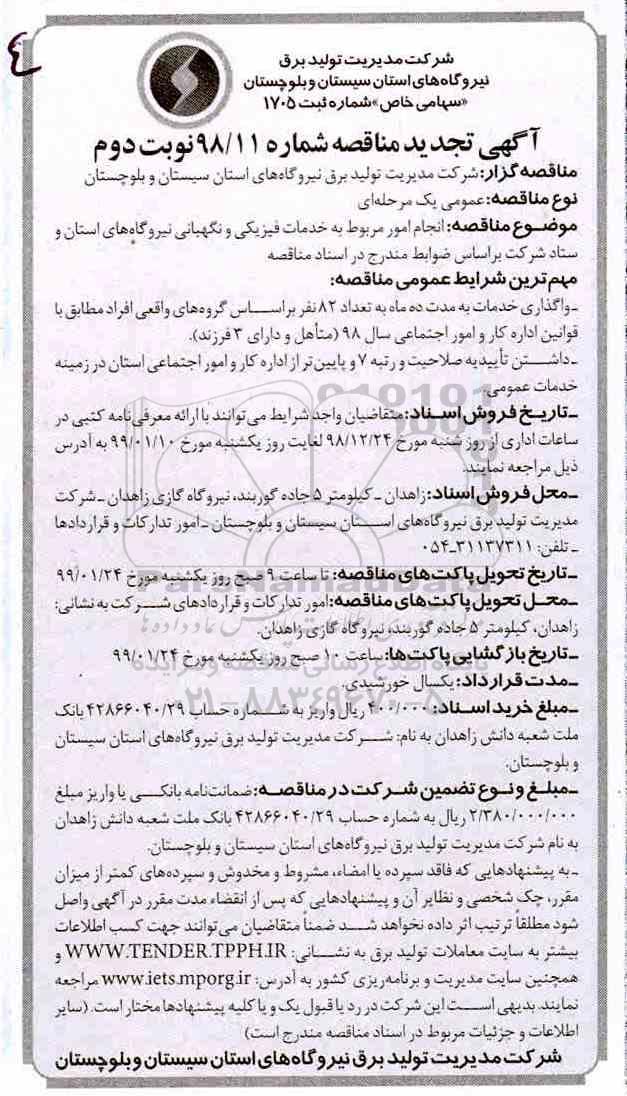 شرکت مدیریت تولید برق
نیروگاه‌های استان سیستان و بلوچستان
«سهامی خاص» شماره ثبت ۱۷۰۵
آگهی تجدید مناقصه شماره ۹۸/۱۱ نوبت دوم
مناقصه گزار: شرکت مدیریت تولید برق نیروگاه‌های استان سیستان و بلوچستان
نوع مناقصه: عمومی یک مرحله‌ای
موضوع مناقصه: انجام امور مربوط به خدمات فیزیکی و نگهبانی نیروگاه‌های استان و
ستاد شرکت براساس ضوابط مندرج در اسناد مناقصه
مهم‌ترین شرایط عمومی مناقصه:
ـ واگذاری خدمات به مدت ده ماه به تعداد ۸۲ نفر براساس گروه‌های واقعی افراد مطابق با
قوانین اداره کار و امور اجتماعی سال ۹۸ (متأهل و دارای ۳ فرزند).
ـ داشتن تأییدیه صلاحیت و رتبه ۷ و پایین‌تر از اداره کار و امور اجتماعی استان در زمینه
خدمات عمومی.
ـ تاریخ فروش اسناد: متقاضیان واجد شرایط می‌توانند با ارائه معرفی‌نامه کتبی در
ساعات اداری از روز شنبه مورخ ۹۸/۱۲/۲۴ لغایت روز یکشنبه مورخ ۹۹/۰۱/۱۰ به آدرس
ذیل مراجعه نمایند.
ـ محل فروش اسناد: زاهدان ـ کیلومتر ۵ جاده گوربند، نیروگاه گازی زاهدان ـ شرکت
مدیریت تولید برق نیروگاه‌های استان سیستان و بلوچستان ـ امور تدارکات و قراردادها
ـ تلفن: ۳۱۱۳۷۳۱۱-۰۵۴
ـ تاریخ تحویل پاکت‌های مناقصه: تا ساعت ۹ صبح روز یکشنبه مورخ ۹۹/۰۱/۲۴
ـ محل تحویل پاکت‌های مناقصه: امور تدارکات و قراردادهای شرکت به نشانی:
زاهدان، کیلومتر ۵ جاده گوربند، نیروگاه گازی زاهدان.
ـ تاریخ بازگشایی پاکت‌ها: ساعت ۱۰ صبح روز یکشنبه مورخ ۹۹/۰۱/۲۴
ـ مدت قرارداد: یکسال خورشیدی.
ـ مبلغ خرید اسناد: ۴۰۰/۰۰۰ ریال واریز به شماره حساب ۴۲۸۶۶۰۴۰/۲۹ بانک
ملت شعبه دانش زاهدان به نام: شرکت مدیریت تولید برق نیروگاه‌های استان سیستان
و بلوچستان.
ـ مبلغ و نوع تضمین شرکت در مناقصه: ضمانت‌نامه بانکی یا واریز مبلغ
۲/۳۸۰/۰۰۰/۰۰۰ ریال به شماره حساب ۴۲۸۶۶۰۴۰/۲۹ بانک ملت شعبه دانش زاهدان
به نام شرکت مدیریت تولید برق نیروگاه‌های استان سیستان و بلوچستان.
ـ به پیشنهادهایی که فاقد سپرده یا امضاء، مشروط و مخدوش و سپرده‌های کمتر از میزان
مقرر، چک شخصی و نظایر آن و پیشنهادهایی که پس از انقضاء مدت مقرر در آگهی واصل
شود مطلقاً ترتیب اثر داده نخواهد شد. ضمناً متقاضیان می‌توانند جهت کسب اطلاعات
بیشتر به سایت معاملات تولید برق به نشانی: WWW.TENDER.TPPH.IR و
همچنین سایت مدیریت و برنامه‌ریزی کشور به آدرس: www.iets.mporg.ir مراجعه
نمایند. بدیهی است این شرکت در رد یا قبول یک و یا کلیه پیشنهادها مختار است. (سایر
اطلاعات و جزئیات مربوط در اسناد مناقصه مندرج است)
شرکت مدیریت تولید برق نیروگاه‌های استان سیستان و بلوچستان
ParsNamadData
پایگاه اطلاع رسانی مناقصه و مزایده
۰۲۱-۸۸۳۴۹۶۷۰-۵